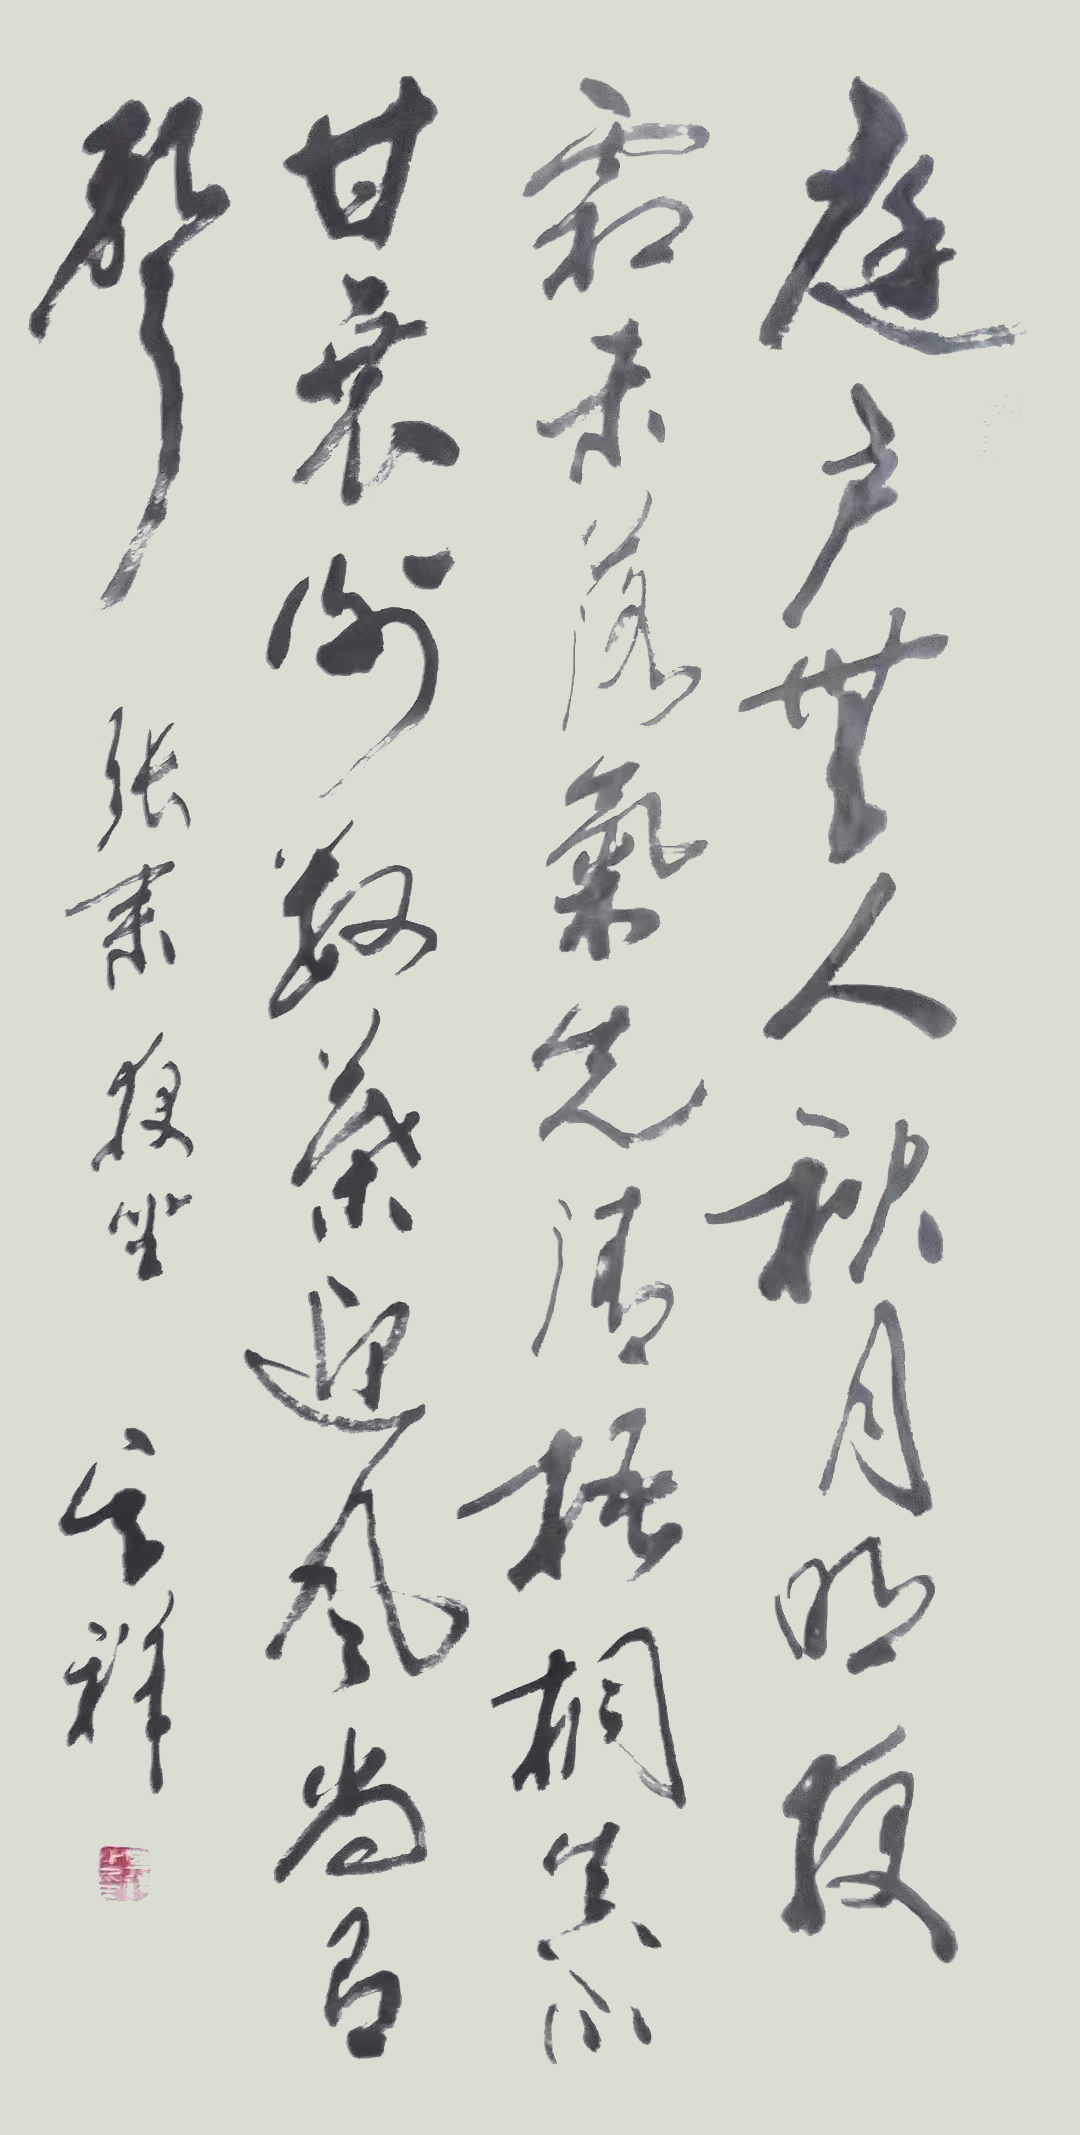 庭户無人秋月明夜
霜未落氣先清梧桐真不
甘衰谢数葉迎风尚有
聲 张耒 夜坐 祥